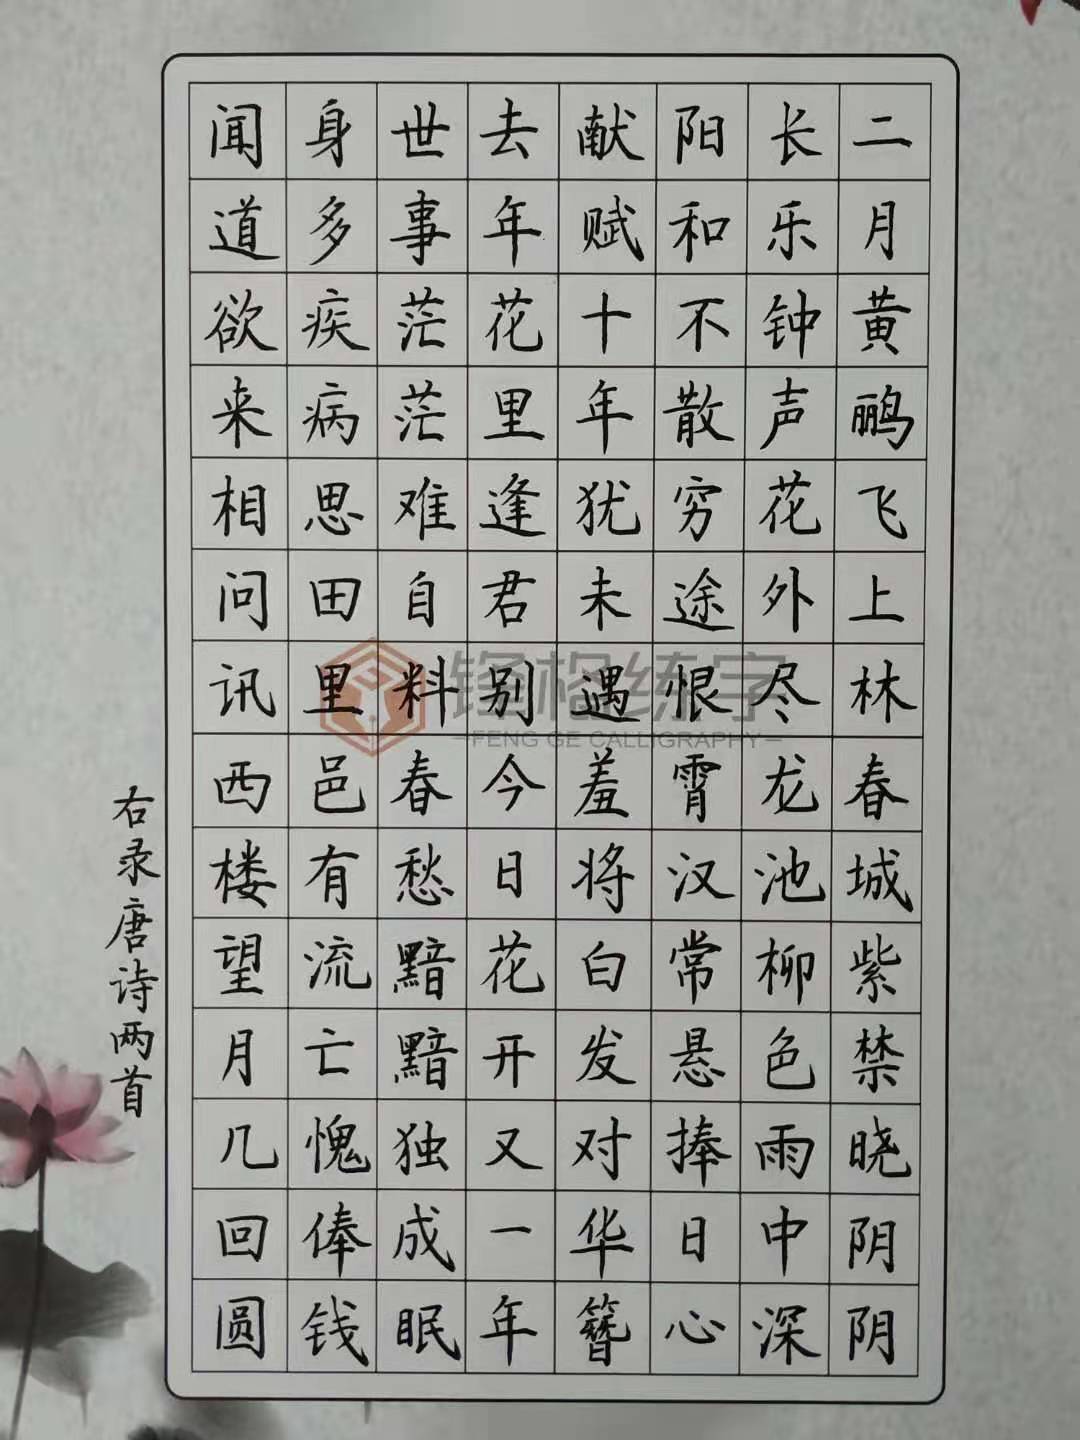 二月黄鹂飞上林春城紫禁晓阴阴
长乐钟声花外尽龙池柳色雨中深
阳和不散穷途恨霄汉常悬捧日心
献赋十年犹未遇羞将白发对华簪
去年花里逢君别今日花开又一年
世事茫茫难自料春愁黯黯独成眠
身多疾病思田里邑有流亡愧俸钱
闻道欲来相问讯西楼望月几回圆
右录唐诗两首
锋格练字
FENG GE CALLIGRAPHY